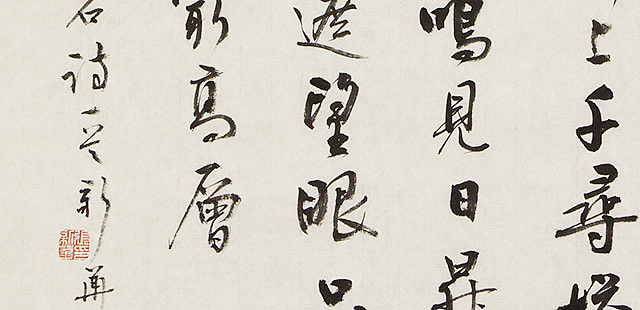 上千尋塔
鳴見日昇
遮望眼只
最高層
石詩一首新華